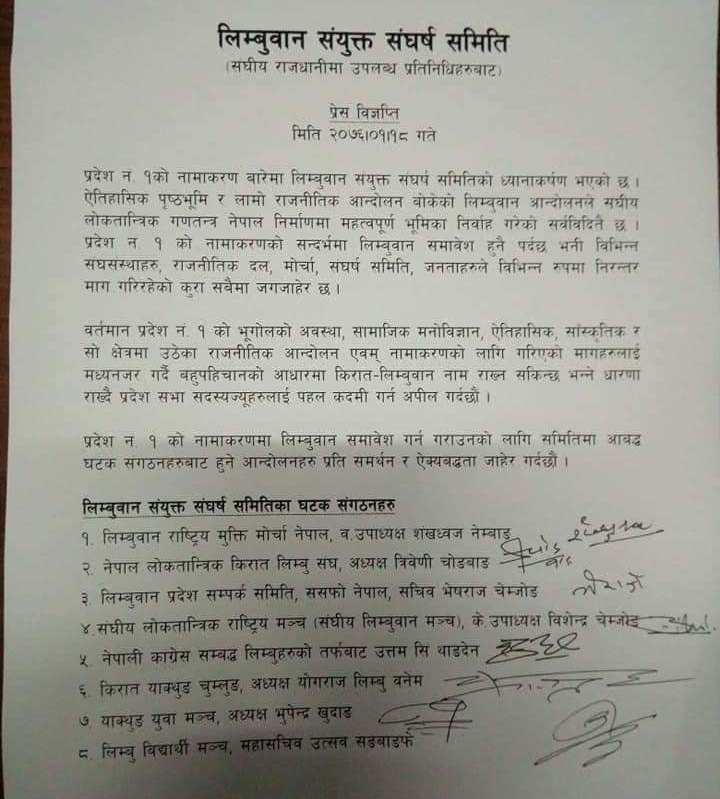 लिम्बुवान संयुक्त संघर्ष समिति
(संघीय राजधानीमा उपलब्ध प्रतिनिधिहरुबाट)
प्रेस विज्ञप्ति
मिति २०७६।०१।१८ गते
प्रदेश न. १को नामाकरण बारेमा लिम्बुवान संयुक्त संघर्ष समितिको ध्यानाकर्षण भएको छ ।
ऐतिहासिक पृष्ठभूमि र लामो राजनीतिक आन्दोलन बोकेको लिम्बुवान आन्दोलनले संघीय
लोकतान्त्रिक गणतन्त्र नेपाल निर्माणमा महत्वपूर्ण भूमिका निर्वाह गरेको सर्वविदितै छ ।
प्रदेश न. १ को नामाकरणको सन्दर्भमा लिम्बुवान समावेश हुनै पर्दछ भनी विभिन्न
संघसंस्थाहरु, राजनीतिक दल, मोर्चा, संघर्ष समिति, जनताहरुले विभिन्न रुपमा निरन्तर
माग गरिरहेको कुरा सबैमा जगजाहेर छ ।
वर्तमान प्रदेश नं. १ को भूगोलको अवस्था, सामाजिक मनोविज्ञान, ऐतिहासिक, साँस्कृतिक र
सो क्षेत्रमा उठेका राजनीतिक आन्दोलन एवम् नामाकरणको लागि गरिएको मागहरुलाई
मध्यनजर गर्दै बहुपहिचानको आधारमा किरात-लिम्बुवान नाम राख्न सकिन्छ भन्ने धारणा
राख्दै प्रदेश सभा सदस्यज्यूहरुलाई पहल कदमी गर्न अपील गर्दछौं ।
प्रदेश न. १ को नामाकरणमा लिम्बुवान समावेश गर्न गराउनको लागि समितिमा आबद्ध
घटक संगठनहरुबाट हुने आन्दोलनहरु प्रति समर्थन र ऐक्यबद्धता जाहेर गर्दछौं ।
लिम्बुवान संयुक्त संघर्ष समितिका घटक संगठनहरु
१. लिम्बुवान राष्ट्रिय मुक्ति मोर्चा नेपाल, व.उपाध्यक्ष शंखध्वज नेम्बाङ
२. नेपाल लोकतान्त्रिक किरात लिम्बु संघ, अध्यक्ष त्रिवेणी चोङबाङ
३. लिम्बुवान प्रदेश सम्पर्क समिति, ससफो नेपाल, सचिव भेषराज चेम्जोङ
४.संघीय लोकतान्त्रिक राष्ट्रिय मञ्च (संघीय लिम्बुवान मञ्च), के.उपाध्यक्ष विशेन्द्र चेम्जोङ
५. नेपाली काग्रेस सम्बद्ध लिम्बुहरुको तर्फबाट उत्तम सिं थाङदेन
६. किरात याक्थुङ चुम्लुङ, अध्यक्ष योगराज लिम्बु वनेम
७. याक्थुङ युवा मञ्च, अध्यक्ष भुपेन्द्र खुदाङ
८. लिम्बु विद्यार्थी मञ्च, महासचिव उत्सव सङबाङफे